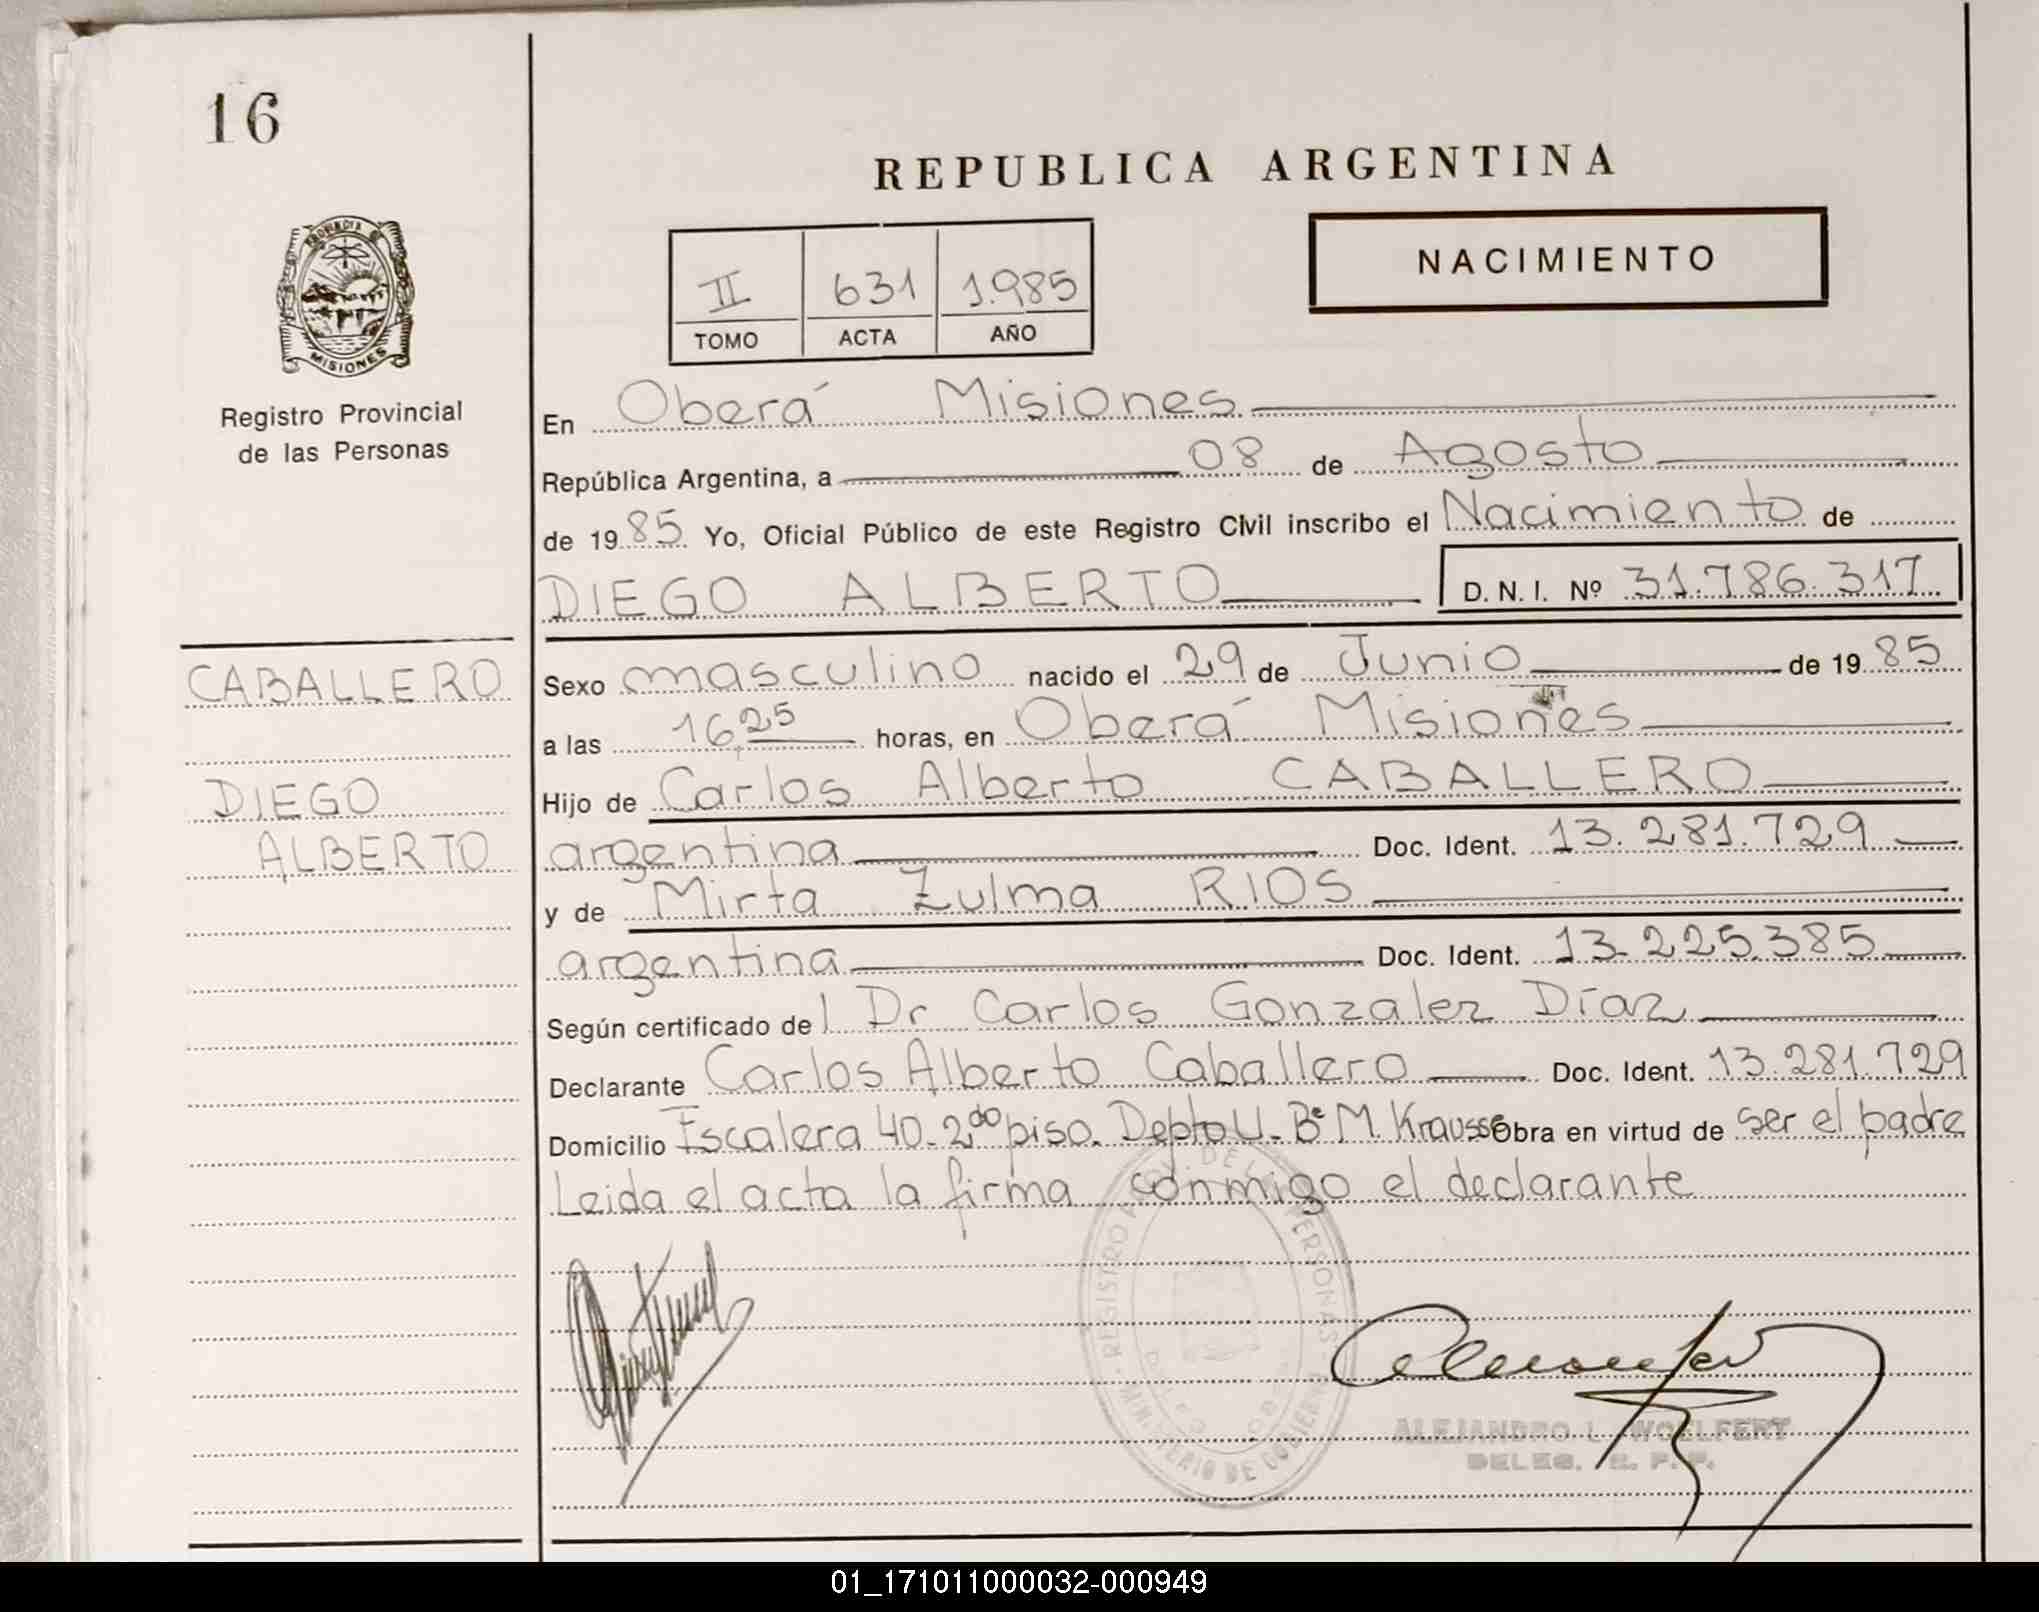 16
REPUBLICA ARGENTINA
PROVINCIA DE
MISIONES
NACIMIENTO
II 631 1.985
TOMO ACTA AÑO
Registro Provincial
de las Personas
En Oberá Misiones
República Argentina, a 08 de Agosto
de 19 85 Yo, Oficial Público de este Registro Civil inscribo el Nacimiento de
DIEGO ALBERTO D. N. I. Nº 31.786.317
CABALLERO
DIEGO
ALBERTO
Sexo masculino nacido el 29 de Junio de 19 85
a las 16,25 horas, en Oberá Misiones
Hijo de Carlos Alberto CABALLERO
argentina Doc. Ident. 13.281.729
y de Mirta Zulma RIOS
argentina Doc. Ident. 13.225.385
Según certificado del Dr Carlos Gonzalez Díaz
Declarante Carlos Alberto Caballero Doc. Ident. 13.281.729
Domicilio Escalera 40-2do piso. Depto U- Bº M. Krausse Obra en virtud de ser el padre
Leida el acta la firma conmigo el declarante
REGISTRO PROV. DE LAS PERSONAS
MINISTERIO DE GOBIERNO
ALEJANDRO L. WOELFERT
DELEG. R. P. P.
01_171011000032-000949